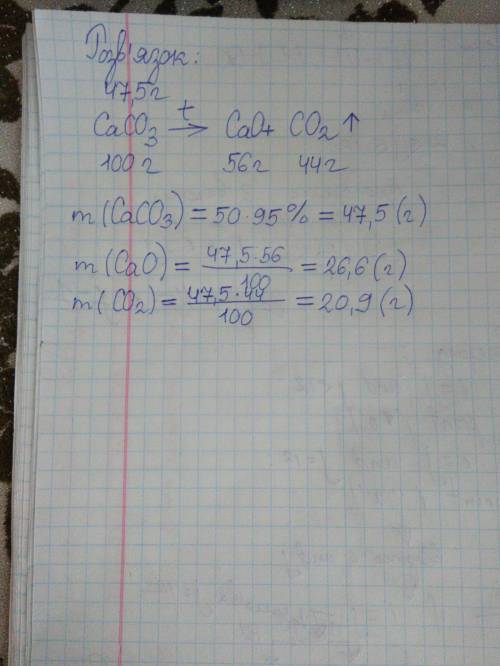 Розв'язок:
47,5г
CaCO₃ —t→ CaO + CO₂↑
100г 56г 44г
m(CaCO₃) = 50·95% = 47,5(г)
m(CaO) = 47,5·56/100 = 26,6(г)
m(CO₂) = 47,5·44/100 = 20,9(г)